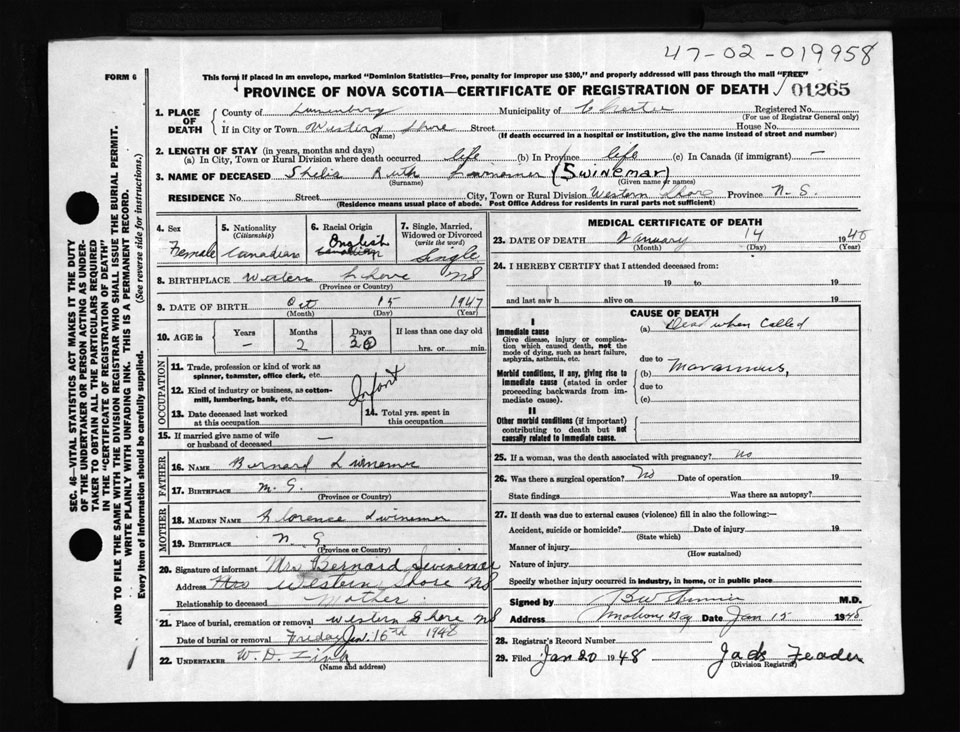 47-02-019958
FORM 6
This form if placed in an envelope, marked "Dominion Statistics—Free, penalty for improper use $300," and properly addressed will pass through the mail "FREE"
PROVINCE OF NOVA SCOTIA—CERTIFICATE OF REGISTRATION OF DEATH 01265
SEC. 46—VITAL STATISTICS ACT MAKES IT THE DUTY
OF THE UNDERTAKER OR PERSON ACTING AS UNDER-
TAKER TO OBTAIN ALL THE PARTICULARS REQUIRED
IN THE "CERTIFICATE OF REGISTRATION OF DEATH"
AND TO FILE THE SAME WITH THE DIVISION REGISTRAR WHO SHALL ISSUE THE BURIAL PERMIT.
WRITE PLAINLY WITH UNFADING INK. THIS IS A PERMANENT RECORD.
Every item of information should be carefully supplied. (See reverse side for instructions.)
1. PLACE OF DEATH County of Lunenburg Municipality of Chester Registered No.
(For use of Registrar General only)
If in City or Town Western Shore Street House No.
(Name) (If death occurred in a hospital or institution, give the name instead of street and number)
2. LENGTH OF STAY (in years, months and days)
(a) In City, Town or Rural Division where death occurred life (b) In Province life (c) In Canada (if immigrant) —
3. NAME OF DECEASED Shelia Ruth (Swinemar)
(Surname) (Given name or names)
RESIDENCE No. Street City, Town or Rural Division Western Shore Province N.S.
(Residence means usual place of abode. Post Office Address for residents in rural parts not sufficient)
4. Sex Female
5. Nationality (Citizenship) Canadian
6. Racial Origin English Canadian
7. Single, Married, Widowed or Divorced (write the word) Single
8. BIRTHPLACE Western Shore NS
(Province or Country)
9. DATE OF BIRTH Oct 15 1947
(Month) (Day) (Year)
10. AGE in Years Months Days If less than one day old
— 2 hrs. or min.
OCCUPATION
11. Trade, profession or kind of work as spinner, teamster, office clerk, etc.
12. Kind of industry or business, as cotton-mill, lumbering, bank, etc. Infant
13. Date deceased last worked at this occupation
14. Total yrs. spent in this occupation
15. If married give name of wife or husband of deceased —
FATHER
16. NAME Bernard
17. BIRTHPLACE N.S.
(Province or Country)
MOTHER
18. MAIDEN NAME Florence Swinemar
19. BIRTHPLACE N.S.
(Province or Country)
20. Signature of informant Mrs Bernard Swinemar
Address Western Shore NS
Relationship to deceased Mother
21. Place of burial, cremation or removal Western Shore NS
Date of burial or removal Friday Jan. 16th 1948
22. UNDERTAKER W. D. Zink
(Name and address)
MEDICAL CERTIFICATE OF DEATH
23. DATE OF DEATH January 14 1948
(Month) (Day) (Year)
24. I HEREBY CERTIFY that I attended deceased from:
19 to 19
and last saw h alive on 19
CAUSE OF DEATH
I
Immediate cause (a) Dead when called
Give disease, injury or complication which caused death, not the mode of dying, such as heart failure, asphyxia, asthenia, etc.
due to
Morbid conditions, if any, giving rise to immediate cause (stated in order proceeding backwards from immediate cause). (b) Marasmus,
due to
(c)
II
Other morbid conditions (if important) contributing to death but not causally related to immediate cause.
25. If a woman, was the death associated with pregnancy? No
26. Was there a surgical operation? No Date of operation 19
State findings Was there an autopsy?
27. If death was due to external causes (violence) fill in also the following:—
Accident, suicide or homicide? Date of injury 19
(State which)
Manner of injury
(How sustained)
Nature of injury
Specify whether injury occurred in industry, in home, or in public place
Signed by M.D.
Address Mahone Bay Date Jan 15 1948
28. Registrar's Record Number
29. Filed Jan 20 1948 Jack Feader
(Division Registrar)